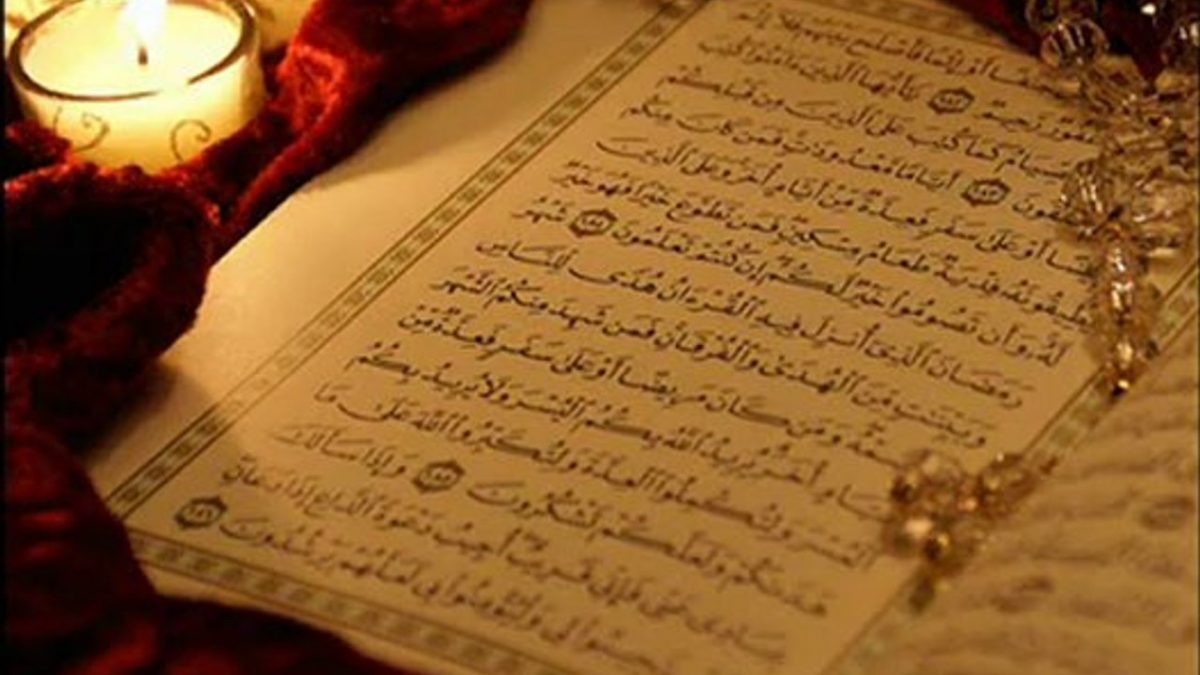 أَوْ إِثْمًا فَأَصْلَحَ بَيْنَهُمْ فَلَآ إِثْمَ
رَّحِيمٌ ١٨٢ يَٰٓأَيُّهَا ٱلَّذِينَ ءَامَنُوا۟ كُتِبَ
ٱلصِّيَامُ كَمَا كُتِبَ عَلَى ٱلَّذِينَ مِن قَبْلِكُمْ
١٨٣ أَيَّامًا مَّعْدُودَٰتٍ فَمَن كَانَ مِنكُم
أَوْ عَلَىٰ سَفَرٍ فَعِدَّةٌ مِّنْ أَيَّامٍ أُخَرَ وَعَلَى ٱلَّذِينَ
يُطِيقُونَهُۥ فِدْيَةٌ طَعَامُ مِسْكِينٍ فَمَن تَطَوَّعَ خَيْرًا فَهُوَ خَيْرٌ
لَّهُۥ وَأَن تَصُومُوا۟ خَيْرٌ لَّكُمْ إِن كُنتُمْ تَعْلَمُونَ ١٨٤ شَهْرُ
رَمَضَانَ ٱلَّذِىٓ أُنزِلَ فِيهِ ٱلْقُرْءَانُ هُدًى لِّلنَّاسِ
وَبَيِّنَٰتٍ مِّنَ ٱلْهُدَىٰ وَٱلْفُرْقَانِ فَمَن شَهِدَ مِنكُمُ ٱلشَّهْرَ
وَمَن كَانَ مَرِيضًا أَوْ عَلَىٰ سَفَرٍ فَعِدَّةٌ مِّنْ
أَيَّامٍ أُخَرَ يُرِيدُ ٱللَّهُ بِكُمُ ٱلْيُسْرَ وَلَا يُرِيدُ بِكُمُ
ٱلْعُسْرَ وَلِتُكْمِلُوا۟ ٱلْعِدَّةَ وَلِتُكَبِّرُوا۟ ٱللَّهَ عَلَىٰ مَا
هَدَىٰكُمْ وَلَعَلَّكُمْ تَشْكُرُونَ ١٨٥ وَإِذَا سَأَلَكَ
عِبَادِى عَنِّى فَإِنِّى قَرِيبٌ أُجِيبُ دَعْوَةَ ٱلدَّاعِ إِذَا دَعَانِ
لِى وَلْيُؤْمِنُوا۟ بِى لَعَلَّهُمْ يَرْشُدُونَ ١٨٦